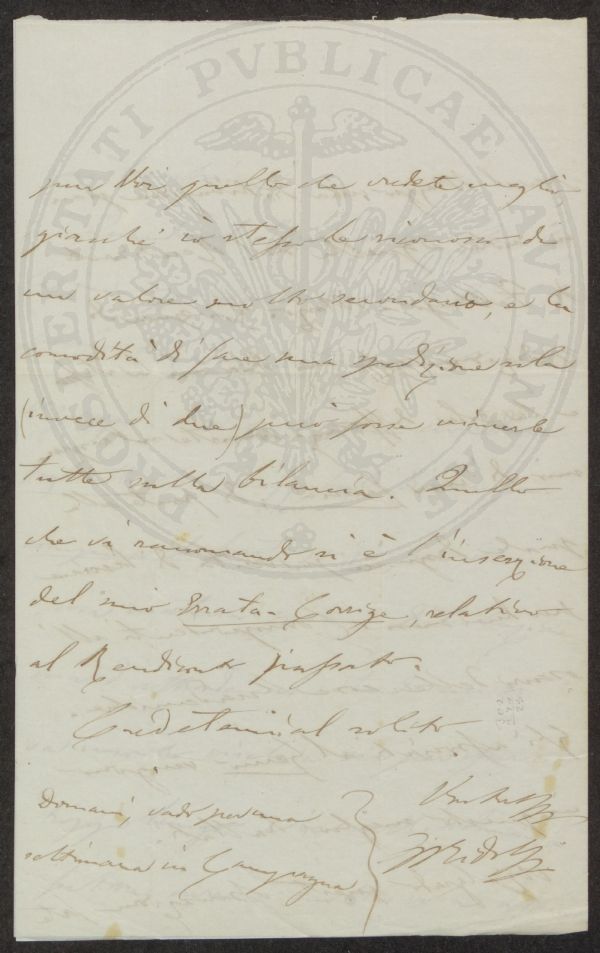 PROSPERITATI PVBLICAE AVGENDAE
quello che credete meglio
giacchè io stesso le riconosco di
un valore molto secondario, e la
comodità di fare una spedizione sola
(invece di due) può forse vincerle
tutte sulla bilancia. Quello
che vi raccomando si è l'inserzione
del mio Errata-Corrige, relativo
al Rendiconto passato.
Credetemi al solito
Domani, vado per una
settimana in Campagna